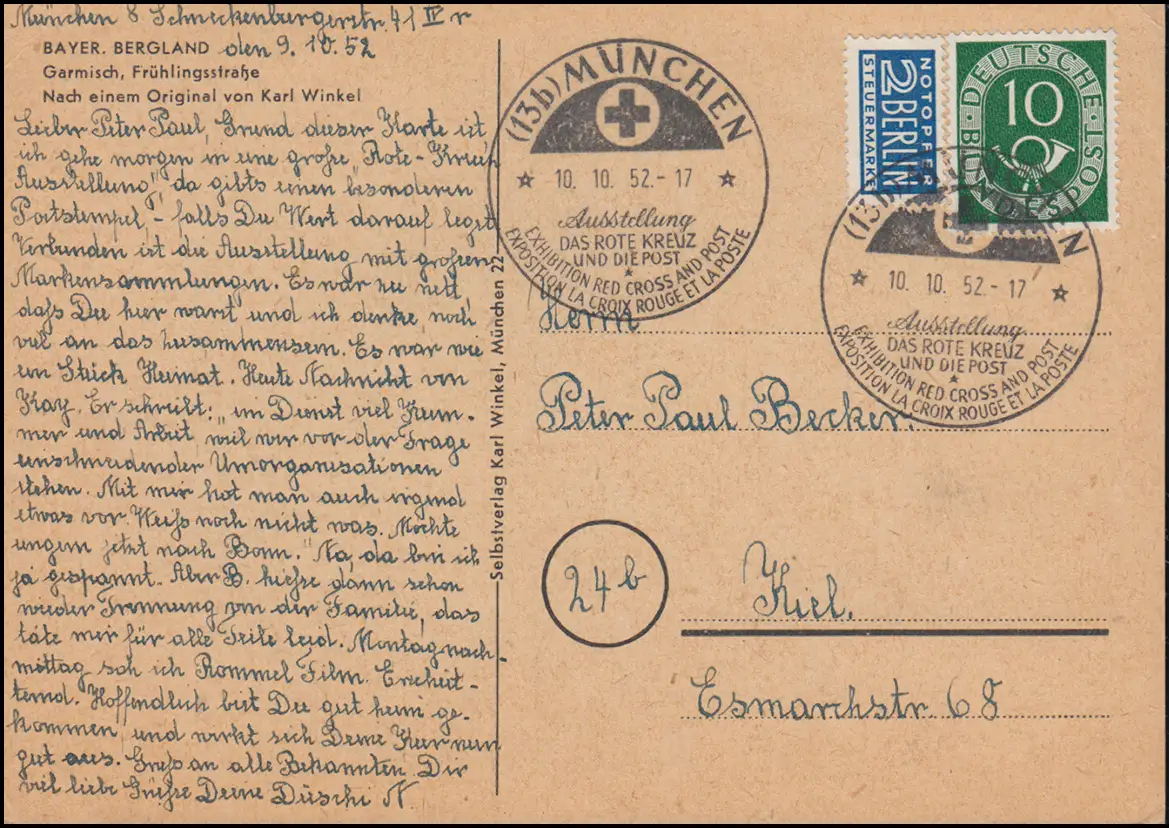 München 8 Schneckenburgerstr. 41 IV r
BAYER. BERGLAND den 9. 10. 52
Garmisch, Frühlingsstraße
Nach einem Original von Karl Winkel
Lieber Peter Paul, Grund dieser Karte ist
ich gehe morgen in eine große „Rote-Kreuz
Ausstellung", da gibts einen besonderen
Poststempel, - falls Du Wert darauf legst
Verbunden ist die Ausstellung mit großen
Markensammlungen. Es war zu nett,
daß Du hier warst und ich denke noch
viel an das Zusammensein. Es war wie
ein Stück Heimat. Heute Nachricht von
Kay. Er schreibt: „im Dienst viel Kum-
mer und Arbeit, weil wir vor der Frage
einschneidender Umorganisationen
stehen. Mit mir hat man auch irgend
etwas vor. Weiß noch nicht was. Möchte
ungern jetzt nach Bonn." Na, da bin ich
ja gespannt. Aber B. hieße dann schon
wieder Trennung von der Familie, das
täte mir für alle Teile leid. Montagnach-
mittag sah ich Rommel Film. Erschüt-
ternd. Hoffentlich bist Du gut heim ge-
kommen und wirkt sich Deine Kur nun
gut aus. Gruß an alle Bekannten. Dir
viel liebe Grüße Deine Düschi N
Selbstverlag Karl Winkel, München 22
(13b) MÜNCHEN
10. 10. 52.-17
Ausstellung
DAS ROTE KREUZ
UND DIE POST
EXHIBITION RED CROSS AND POST
EXPOSITION LA CROIX ROUGE ET LA POSTE
NOTOPFER
2 BERLIN
STEUERMARKE
DEUTSCHE BUNDESPOST
10
(13b) MÜNCHEN
10. 10. 52.-17
Ausstellung
DAS ROTE KREUZ
UND DIE POST
EXHIBITION RED CROSS AND POST
EXPOSITION LA CROIX ROUGE ET LA POSTE
Herrn
Peter Paul Becker.
24b
Kiel.
Esmarchstr. 68